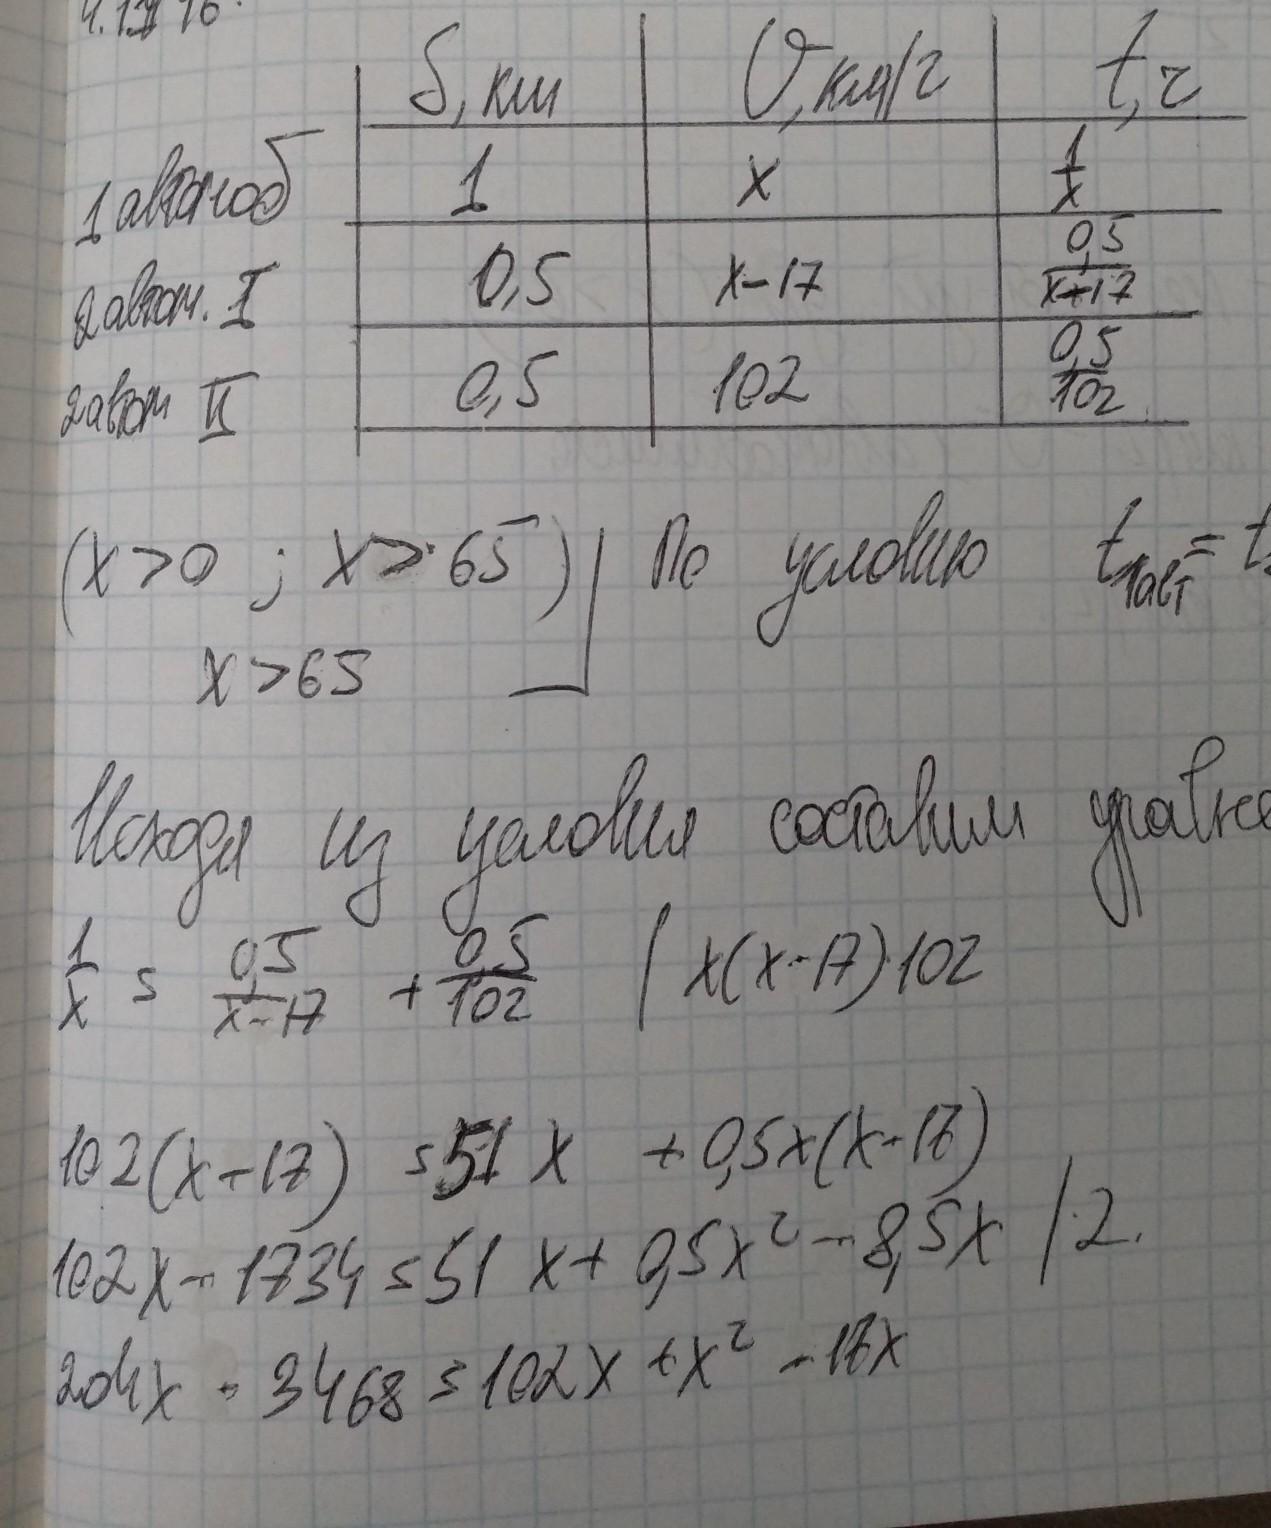 S, км V, км/г t, г
1 автомоб 1 x 1/x
2 автом. I 0,5 x-17 0,5/x-17
2 автом II 0,5 102 0,5/102
(x>0 ; x>65) По условию t1авт = t
x>65
Исходя из условия составим уравне
1/x = 0,5/x-17 + 0,5/102 | x(x-17)·102
102(x-17) = 51x + 0,5x(x-17)
102x - 1734 = 51x + 0,5x² - 8,5x |·2.
204x - 3468 = 102x + x² - 17x